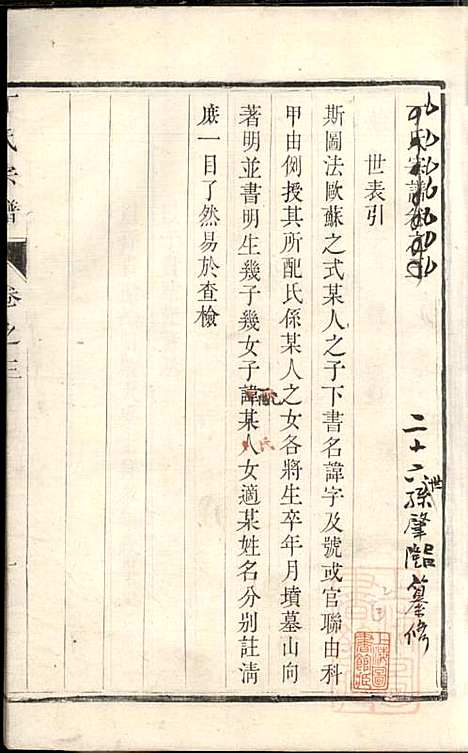 二十六世孫肇臨纂修
世表引
斯圖法歐蘇之式某人之子下書名諱字及號或官聯由科
甲由例授其所配氏係某人之女各將生卒年月墳墓山向
著明並書明生幾子幾女子諱某配某氏女適某姓名分別註清
庶一目了然易於查檢
氏宗譜
卷之三
上海圖書館藏